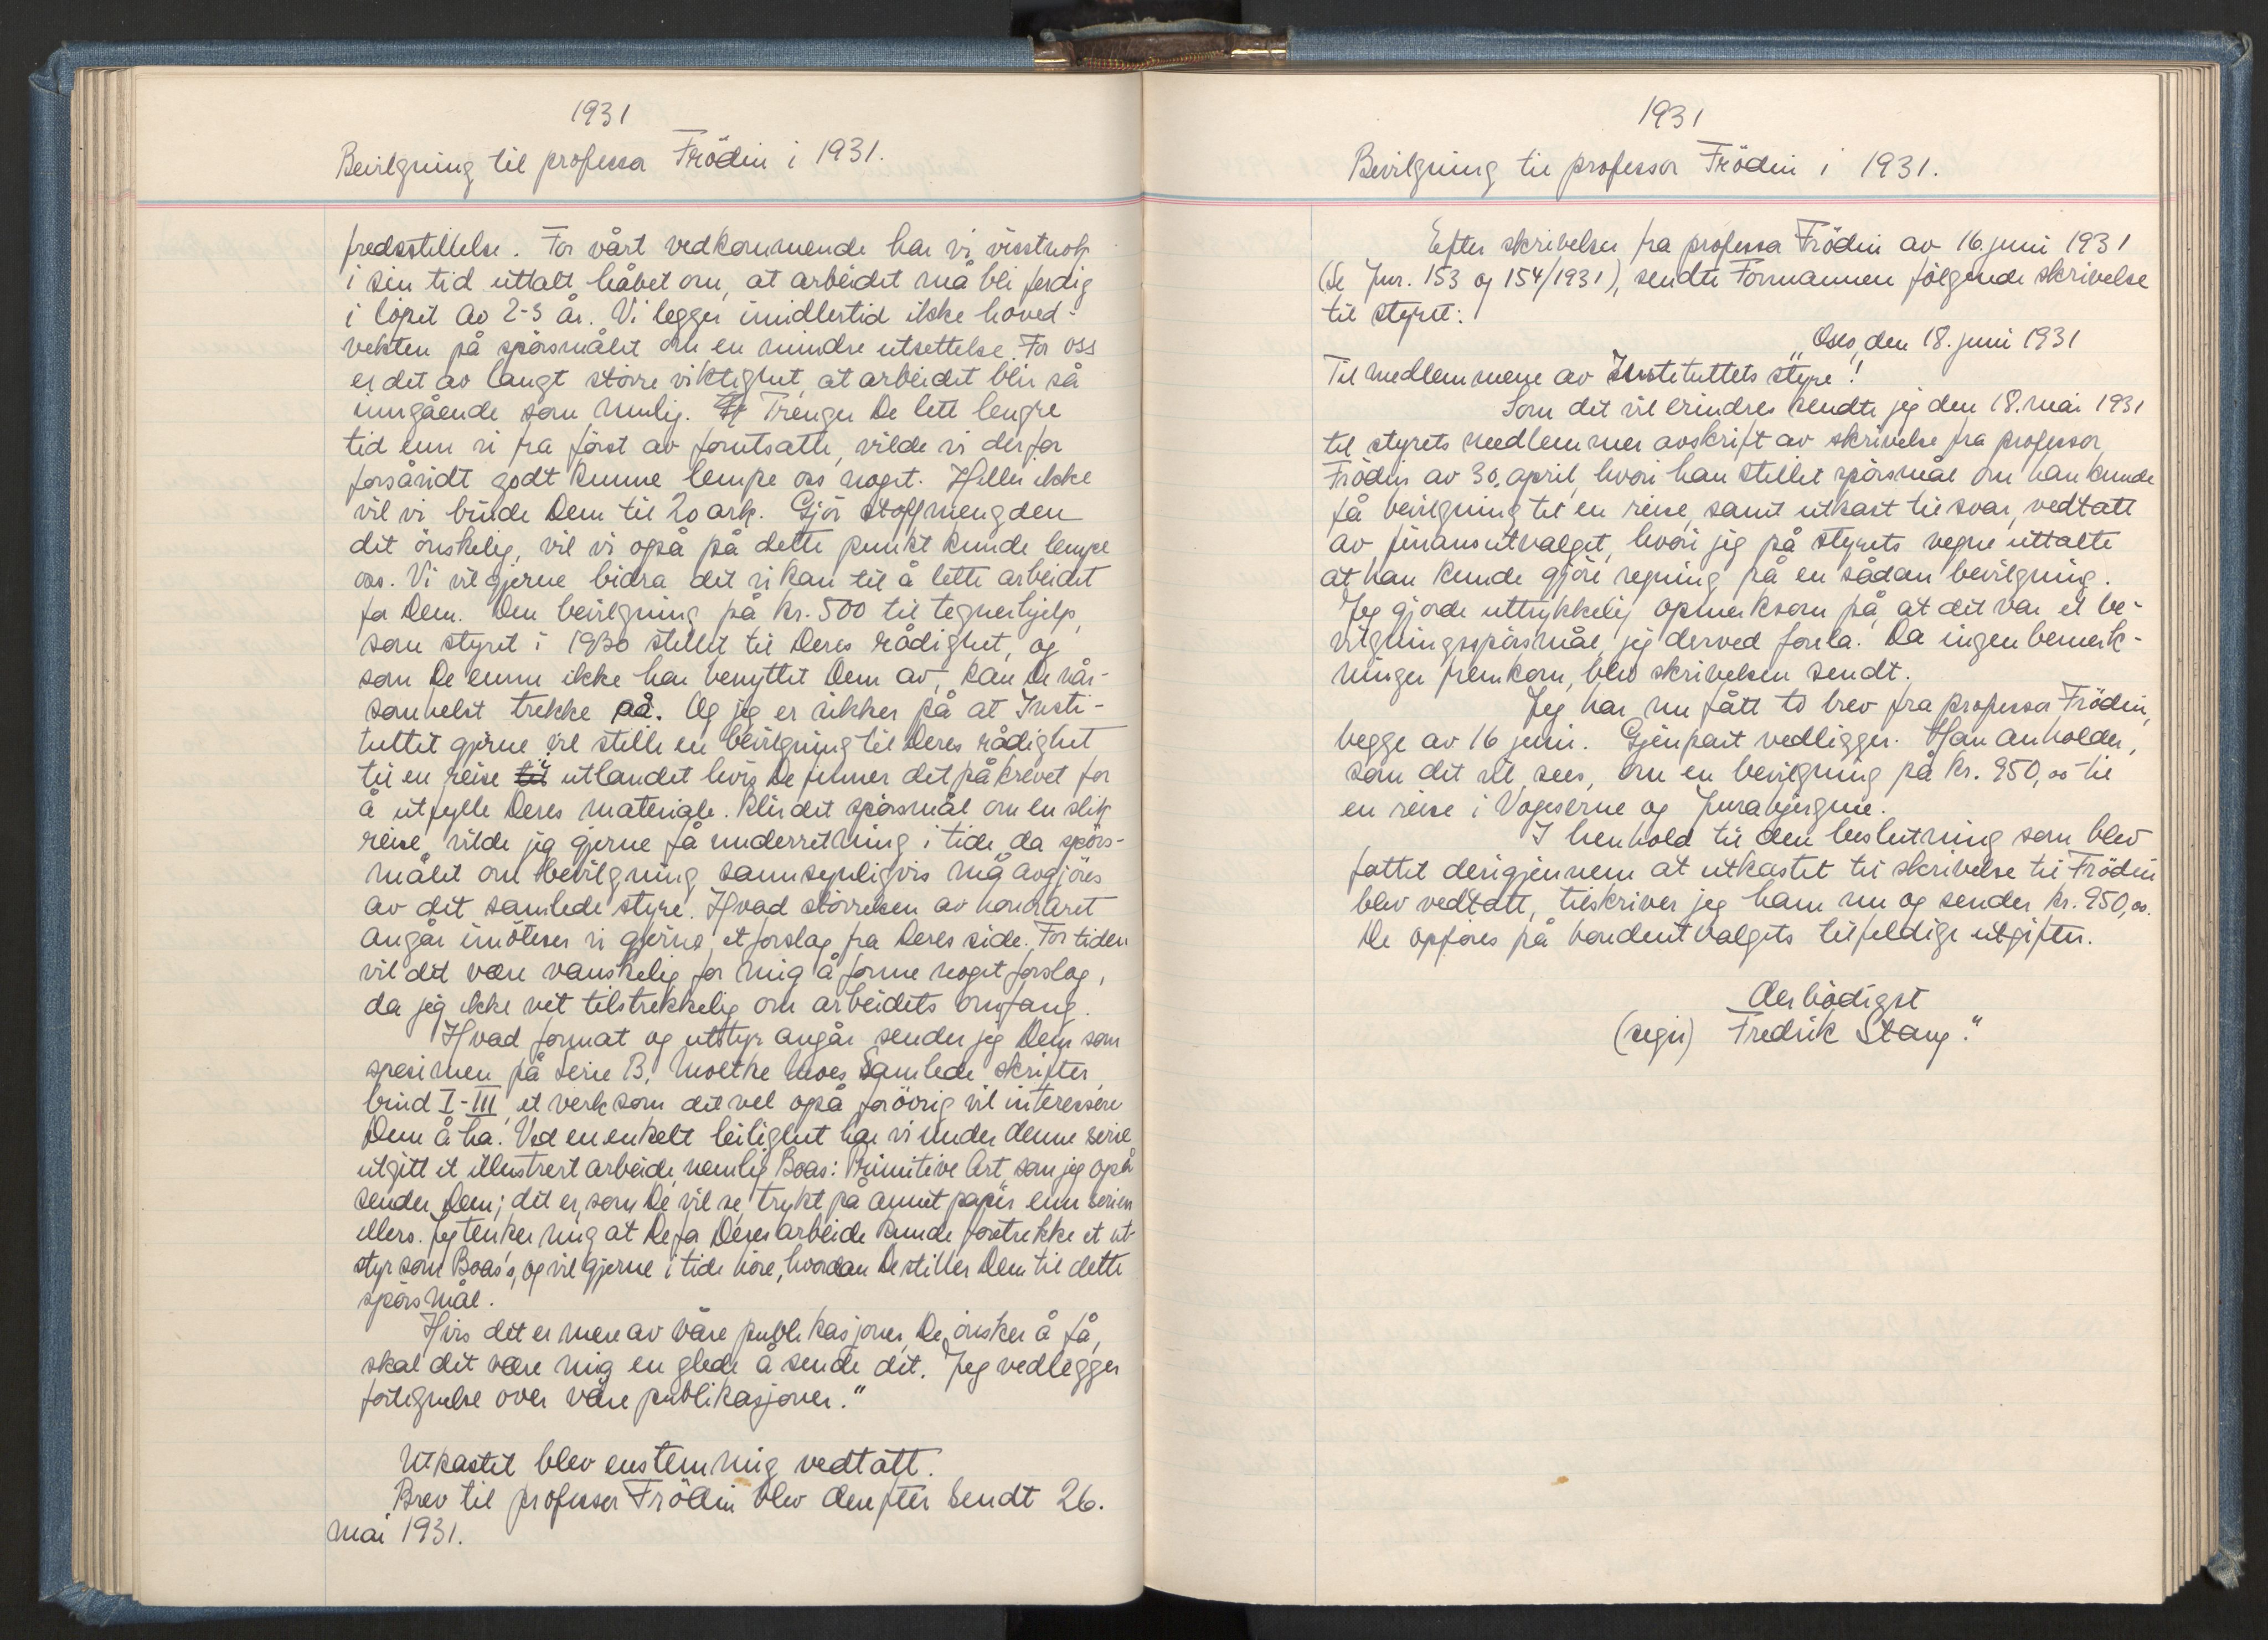 1931
Bevilgning til professor Frödin i 1931.
fredsstillelse. For vårt vedkommende har vi visstnok
i sin tid uttalt håbet om, at arbeidet må bli ferdig
i löpet av 2-3 år. Vi legger imidlertid ikke hoved-
vekten på spörsmålet om en mindre utsettelse. For oss
er det av langt större viktighet, at arbeidet blir så
inngående som mulig. Trenger De litt lengre
tid enn vi fra först av forutsatte, vilde vi derfor
forsåvidt godt kunne lempe oss noget. Heller ikke
vil vi binde Dem til 20 ark. Gjör stoffmengden
det önskelig, vil vi også på dette punkt kunde lempe
oss. Vi vil gjerne bidra det vi kan til å lette arbeidet
for Dem. Den bevilgning på kr. 500 til tegnerhjelp,
som styret i 1930 stillet til Deres rådighet, og
som De ennu ikke har benyttet Dem av, kan De når-
somhelst trekke på. Og jeg er sikker på at Insti-
tuttet gjerne vil stille en bevilgning til Deres rådighet
til en reise til utlandet hvis De finner det påkrevet for
å utfylle Deres materiale. Blir det spörsmål om en slik
reise, vilde jeg gjerne få underretning i tide, da spörs-
målet om bevilgning sannsynligvis må avgjöres
av det samlede styre. Hvad störrelsen av honoraret
angår imöteser vi gjerne et forslag fra Deres side. For tiden
vil det være vanskelig for mig å forme noget forslag,
da jeg ikke vet tilstrekkelig om arbeidets omfang.
Hvad format og utstyr angår sender jeg Dem som
spesimen på Serie B, Moltke Moes Samlede skrifter,
bind I-III, et verk som det vel også forövrig vil interessere
Dem å ha. Ved en enkelt leilighet har vi under denne serie
utgitt et illustrert arbeide, nemlig Boas: Primitive Art, som jeg også
sender Dem; det er, som De vil se, trykt på annet papir enn serien
ellers. Jeg tenker mig at De for Deres arbeide kunde foretrekke et ut-
styr som Boas's, og vil gjerne i tide höre, hvordan De stiller Dem til dette
spörsmål.
Hvis det er mere av våre publikasjoner, De önsker å få,
skal det være mig en glede å sende det. Jeg vedlegger
fortegnelse over våre publikasjoner."
Utkastet blev enstemmig vedtatt.
Brev til professor Frödin blev derefter sendt 26.
mai 1931.
1931
Bevilgning til professor Frödin i 1931.
Efter skrivelser fra professor Frödin av 16. juni 1931
(Se Jnr. 153 og 154/1931), sendte Formannen fölgende skrivelse
til styret:
Oslo, den 18. juni 1931
Til medlemmene av Instituttets styre!
Som det vil erindres sendte jeg den 18. mai 1931
til styrets medlemmer avskrift av skrivelse fra professor
Frödin av 30. april, hvori han stillet spörsmål om han kunde
få bevilgning til en reise, samt utkast til svar, vedtatt
av finansutvalget, hvori jeg på styrets vegne uttalte
at han kunde gjöre regning på en sådan bevilgning.
Jeg gjorde uttrykkelig opmerksom på, at det var et be-
vilgningsspörsmål, jeg derved forela. Da ingen bemerk-
ninger fremkom, blev skrivelsen sendt.
Jeg har nu fått to brev fra professor Frödin,
begge av 16 juni. Gjenpart vedligger. Han anholder,
som det vil sees, om en bevilgning på kr. 950,00 til
en reise i Vogeserne og Jurabjergene.
I henhold til den beslutning som blev
fattet derigjennem at utkastet til skrivelse til Frödin
blev vedtatt, tilskriver jeg ham nu og sender kr. 950,00.
De opföres på bondeutvalgets tilfeldige utgifter.
Ærbödigst
(sign) Fredrik Stang."